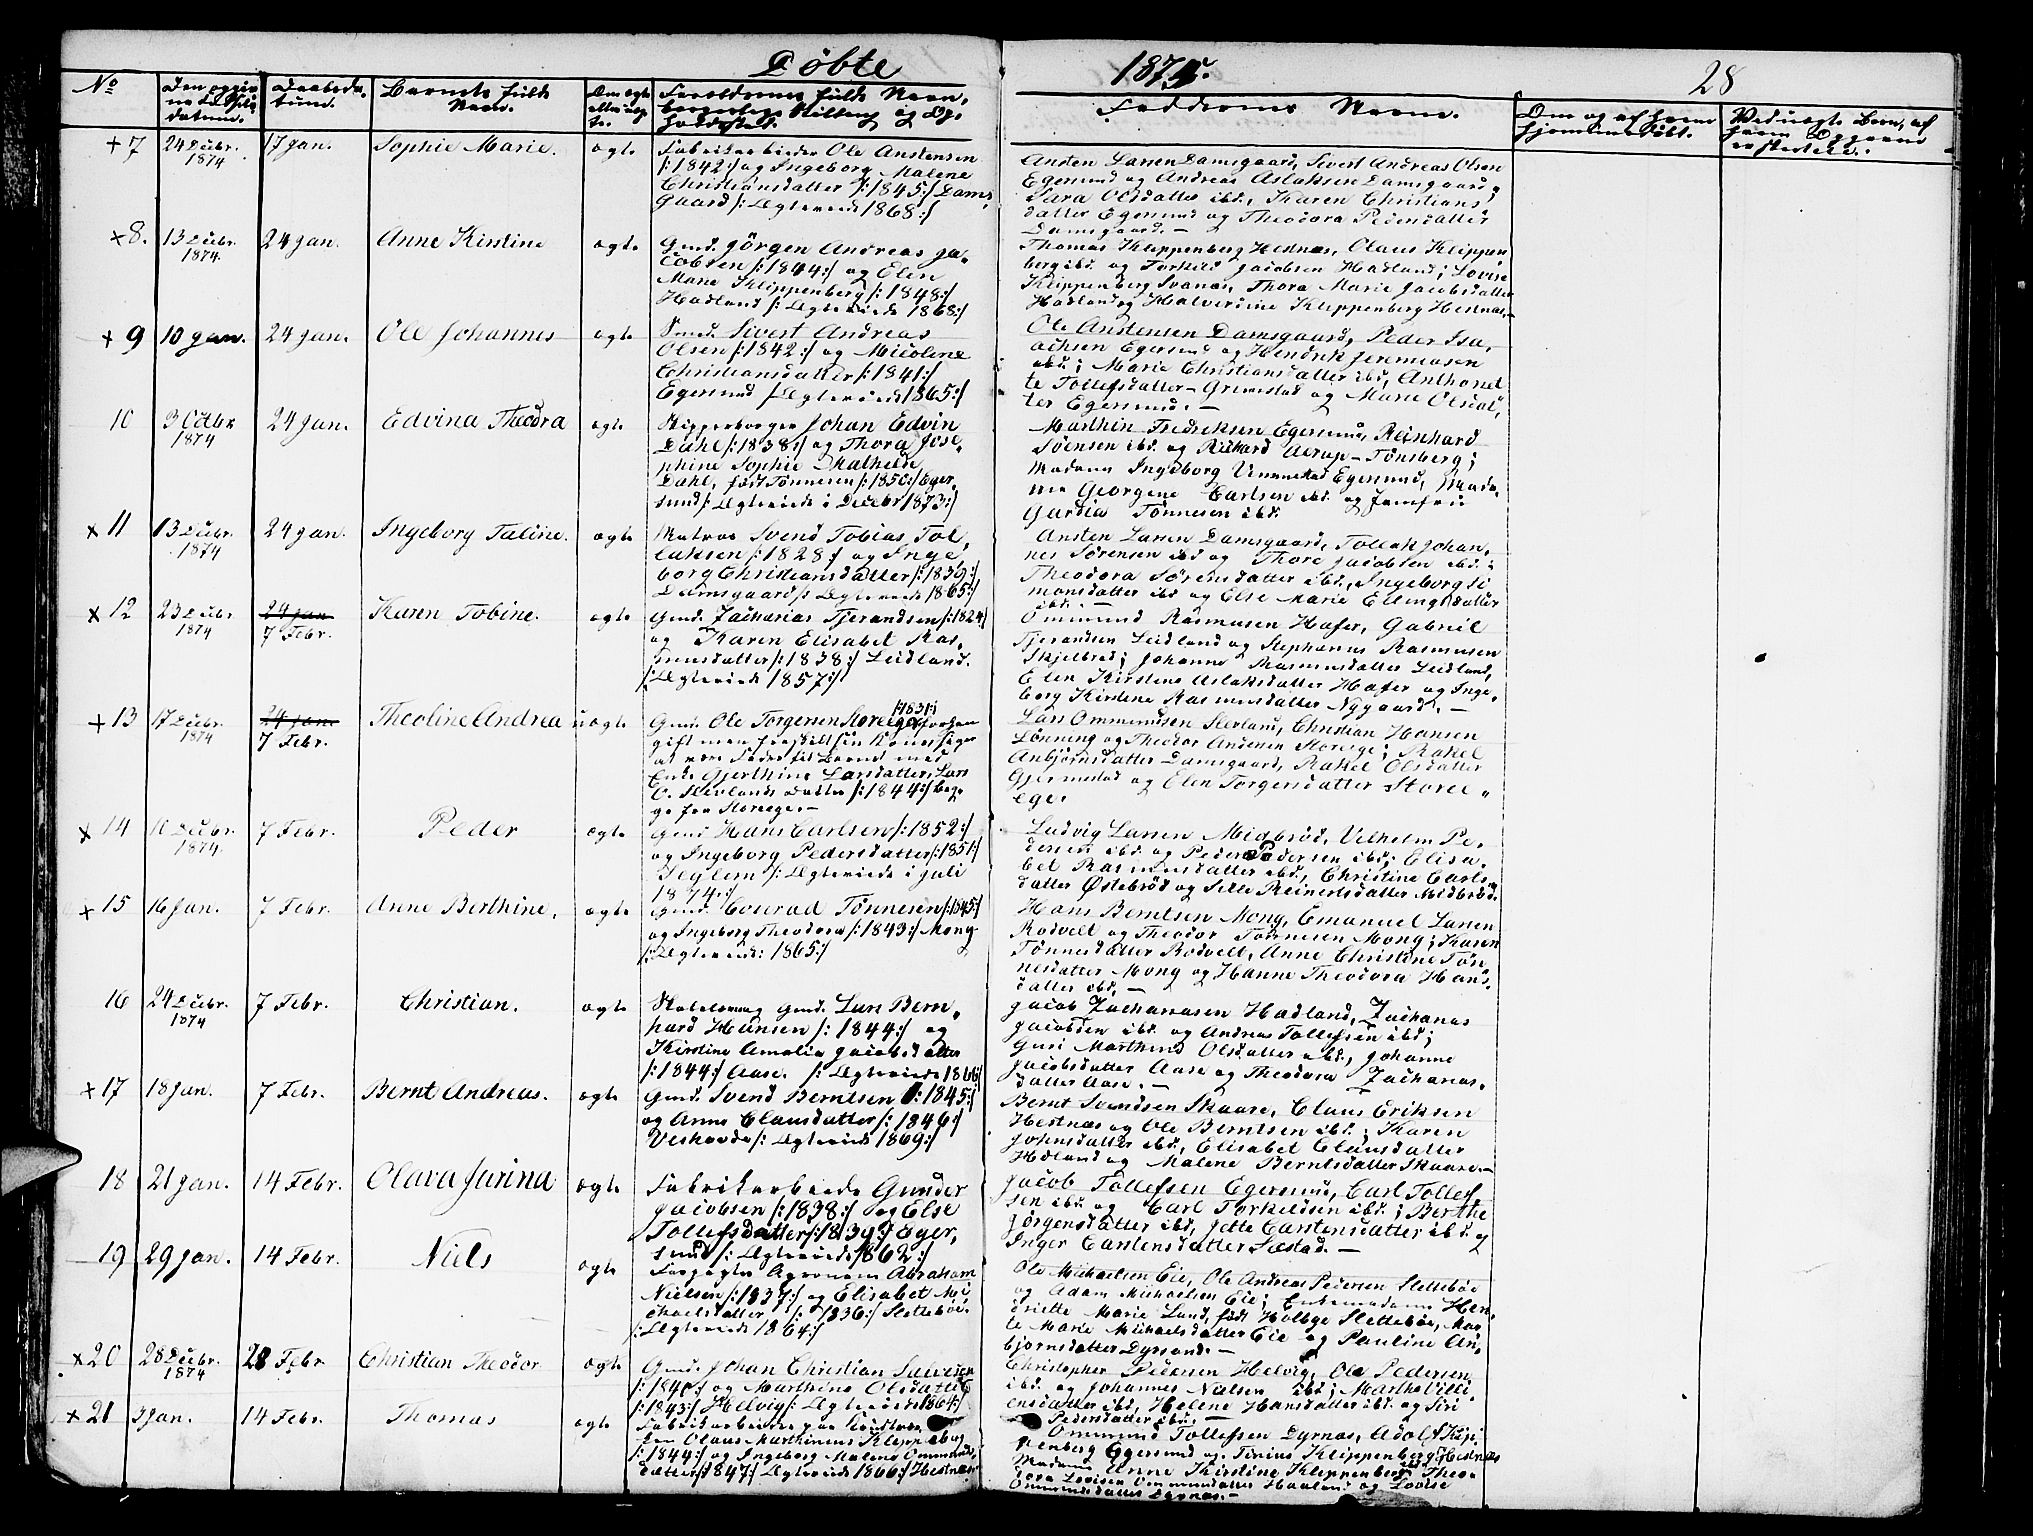 Döbte 1875. 28
No
Barnets fulde Navn.
Faddernes Navne.
+7 24 Decbr. 1874 17 Jan. Sophie Marie. ægte
Fabrikarbeider Ole Anstensen
/:1842:/ og Ingeborg Malene
Christiansdatter /:1845:/ Dams
gaard /: Ægteviede 1868:/
Ansten Larsen Damsgaard, Sivert Andreas Olsen
Egersund og Andreas Aslaksen Damsgaard;
Sara Olsdatter ibd., Karen Christians
datter Egersund og Theodora Pedersdatter
Damsgaard. –
+8. 13 Decbr. 1874. 24 Jan. Anne Kirstine ægte
Gmd. Jörgen Andreas Ja-
cobsen /:1844:/ og Elen
Marie Klippenberg /:1848:/
Hadland /: Ægteviede 1868:/
Thomas Klippenberg Hestnæs, Olaus Klippen
berg ibd. og Torkild Jacobsen Hadland; Lovise
Klippenberg Svanæs, Thora Marie Jacobsdatter
Hadland og Halverdine Klippenberg Hestnæs.–
+9 10 Jan. 24 Jan. Ole Johannes ægte
Smed. Sivert Andreas
Olsen /:1842:/ og Nicoline
Christiansdatter /:1841:/
Egersund /: Ægteviede 1865:/
Ole Anstensen Damsgaard, Peder Isa,
achsen Egersund og Hendrik Jeremiasen
ibd.; Marie Christiansdatter ibd., Anthonet
te Tollefsdatter – Grimestad og Marie Olsdat,
ter Egersund. –
10 3 Octbr. 1874 24 Jan. Edvina Theodora ægte
Skipperborger Johan Edvin
Dahl /:1838:/ og Thora Jose-
phine Sophie Mathilde
Dahl, født Tönnesen /:1850:/ Eger-
sund /: Ægteviede i Decebr 1873:/
Marthin Fredriksen Egersund, Reinhard
Sörensen ibd. og Richard Aarup – Tönsberg;
Madame Ingeborg Vinnestad Egersund, Mada-
me Georgene Carlsen ibd. og Jomfru
Tönnesen ibd.
x 11 13 Decbr. 1874 24 Jan. Ingeborg Taline. ægte
Matros Svend Tobias Tol,
laksen /:1828:/ og Inge,
borg Christiansdatter /:1839:/
Damsgaard /: Ægteviede 1865:/
Ansten Larsen Damsgaard, Tollak Johan,
nes Sörensen ibd. og Thore Jacobsen ibd.;
Theodora Sörensdatter ibd., Ingeborg Si
monsdatter ibd. og Else Marie Ellingsdatter
ibd. –
x 12 23 Decbr 1874 24 Jan 7 Febr. Karen Tobine. ægte
Gmd. Zacharias Tjerandsen /:1824:/
og Karen Elisabet Ras,
musdatter /:1838:/ Leidland.
/: Ægteviede 1857:/
Ommund Rasmusen Hafer, Gabriel
Tjerandsen Leidland og Stephanus Rasmusen
Skjelbred; Johanne Rasmusdatter Leidland,
Elen Kirstine Aslaksdatter Hafer og Inge-
borg Kirstine Rasmusdatter Nygaard. –
+13 17 Decbr. 1874 24 Jan 7 Febr. Theoline Andrea uægte
Gmd. Ole Torgersen Storeege /:1831:/
gift men fraskilt sin Kone siger
at være Fader til Barnet med
Enke Gjerthine Larsdatter, Lars
O. Slevlands datter /:1844:/ beg-
ge fra Storeege. –
Lars Ommundsen Slevland, Christian Hansen
Lönning og Theodor Andersen Storeege; Rakel
Anbjörnsdatter Damsgaard, Rakel Olsdatter
Gjermestad og Elen Torgersdatter Storee-
ege.
x 14 10 Decbr. 1874. 7 Febr. Peder ægte
Gmd Hans Carlsen /:1852:/
og Ingeborg Pedersdatter /:1851:/
/: Ægteviede i Juli
1874:/
Ludvig Larsen Midbröd, Vilhelm Pe-
dersen ibd. og Peder Pedersen ibd.; Elisa.
bet Rasmusdatter ibd., Christine Carls
datter Østebröd og Sille Reinertsdatter Midbröd.
+ 15 16 Jan. 7 Febr. Anne Berthine. ægte
Gmd. Conrad Tönnesen /:1845:/
og Ingeborg Theodora /:1843:/ Mong
/: Ægteviede: 1865:/
Hans Berntsen Mong, Emanuel Larsen
Rodvelt og Theodor Tönnesen Mong; Karen
Tönnesdatter Rodvelt, Anne Christine Tön
nesdatter Mong og Hanne Theodora Hans.
datter ibd. –
16 24 Decbr. 1874 7 Febr. Christian. ægte
Gmd. Lars Bern,
hard Hansen /: 1844:/ og
Kirstine Amalia Jacobsdatter
/:1844:/ Aase. /: Ægteviede 1866:/
Jacob Zachariasen Hadland, Zacharias
Jacobsen ibd. og Andreas Tollefsen ibd;
Guri Marthine Olsdatter ibd., Johanne
Jacobsdatter Aase og Theodora Zacharias.
datter Aase. –
+ 17 18 Jan. 7 Febr. Bernt Andreas. ægte
Gmd. Svend Berntsen /:1845:/
og Anne Clausdatter /:1846:/
Veshovde /: Ægteviede 1869:/
Bernt Svendsen Skaare, Claus Eriksen
Hestnæs og Ole Berntsen ibd.; Karen
Johnsdatter ibd., Elisabet Clausdatter
Hadland og Malene Berntsdatter Skaare.–
18 21 Jan. 14 Febr. Olava Jurina ægte
Fabrikarbeider Gunder
Jacobsen /:1838:/ og Else
Tollefsdatter /:1839:/ Eger,
sund /: Ægteviede 1862:/
Jacob Tollefsen Egersund, Carl Tollef,
sen ibd. og Carl Torkildsen ibd.; Berthe
Jörgensdatter ibd., Jette Carstensdatter ibd. og
Inger Carstensdatter Sæstad. –
19 29 Jan. 14 Febr. Niels ægte
Forpagter Agronom Abraham
Nielsen /:1837:/ og Elisabet Mi
chaelsdatter /: 1836:/ Sletteböe.
/: Ægteviede 1864:/
Ole Michaelsen Eie, Ole Andreas Pedersen Sletteböe
og Adam Michaelsen Eie; Enkemadame Hen,
driette Marie Lund, född Holbye Slettebøe, Mar
te Marie Michaelsdatter Eie og Pauline An,
bjornsdatter Dyrsand. –
x20 28 Decbr. 1874 28 Febr. Christian Theodor ægte
Gmd. Johan Christian Salvesen
/:1840:/ og Marthine Olsdatter
/:1843:/ Helvig /: Ægteviede 1864:/
Christopher Pedersen Helvig, Ole Pedersen
ibd. og Johannes Nielsen ibd.; Marthe Villi
ensdatter ibd., Helene Hansdatter ibd. og Siri
Pedersdatter ibd. –
x21 3 Jan. 14 Febr. Thomas ægte
Fabrikarbeider paa
Olaus Marthinius Klippenberg
/:1844:/ og Ingeborg Malene Ommunds
datter /:1847:/ Ægteviede 1866:/ Hestnæs
Ommund Tollefsen Dyrnæs, Adolf Klip,
penberg Egersund og Tinius Klippenberg Hestnæs
Madame Anne Kirstine Klippenberg ibd., Theo-
dora Lovise Ommundsdatter Hadland og Lovise
Ommundsdatter Dyrnæs. –